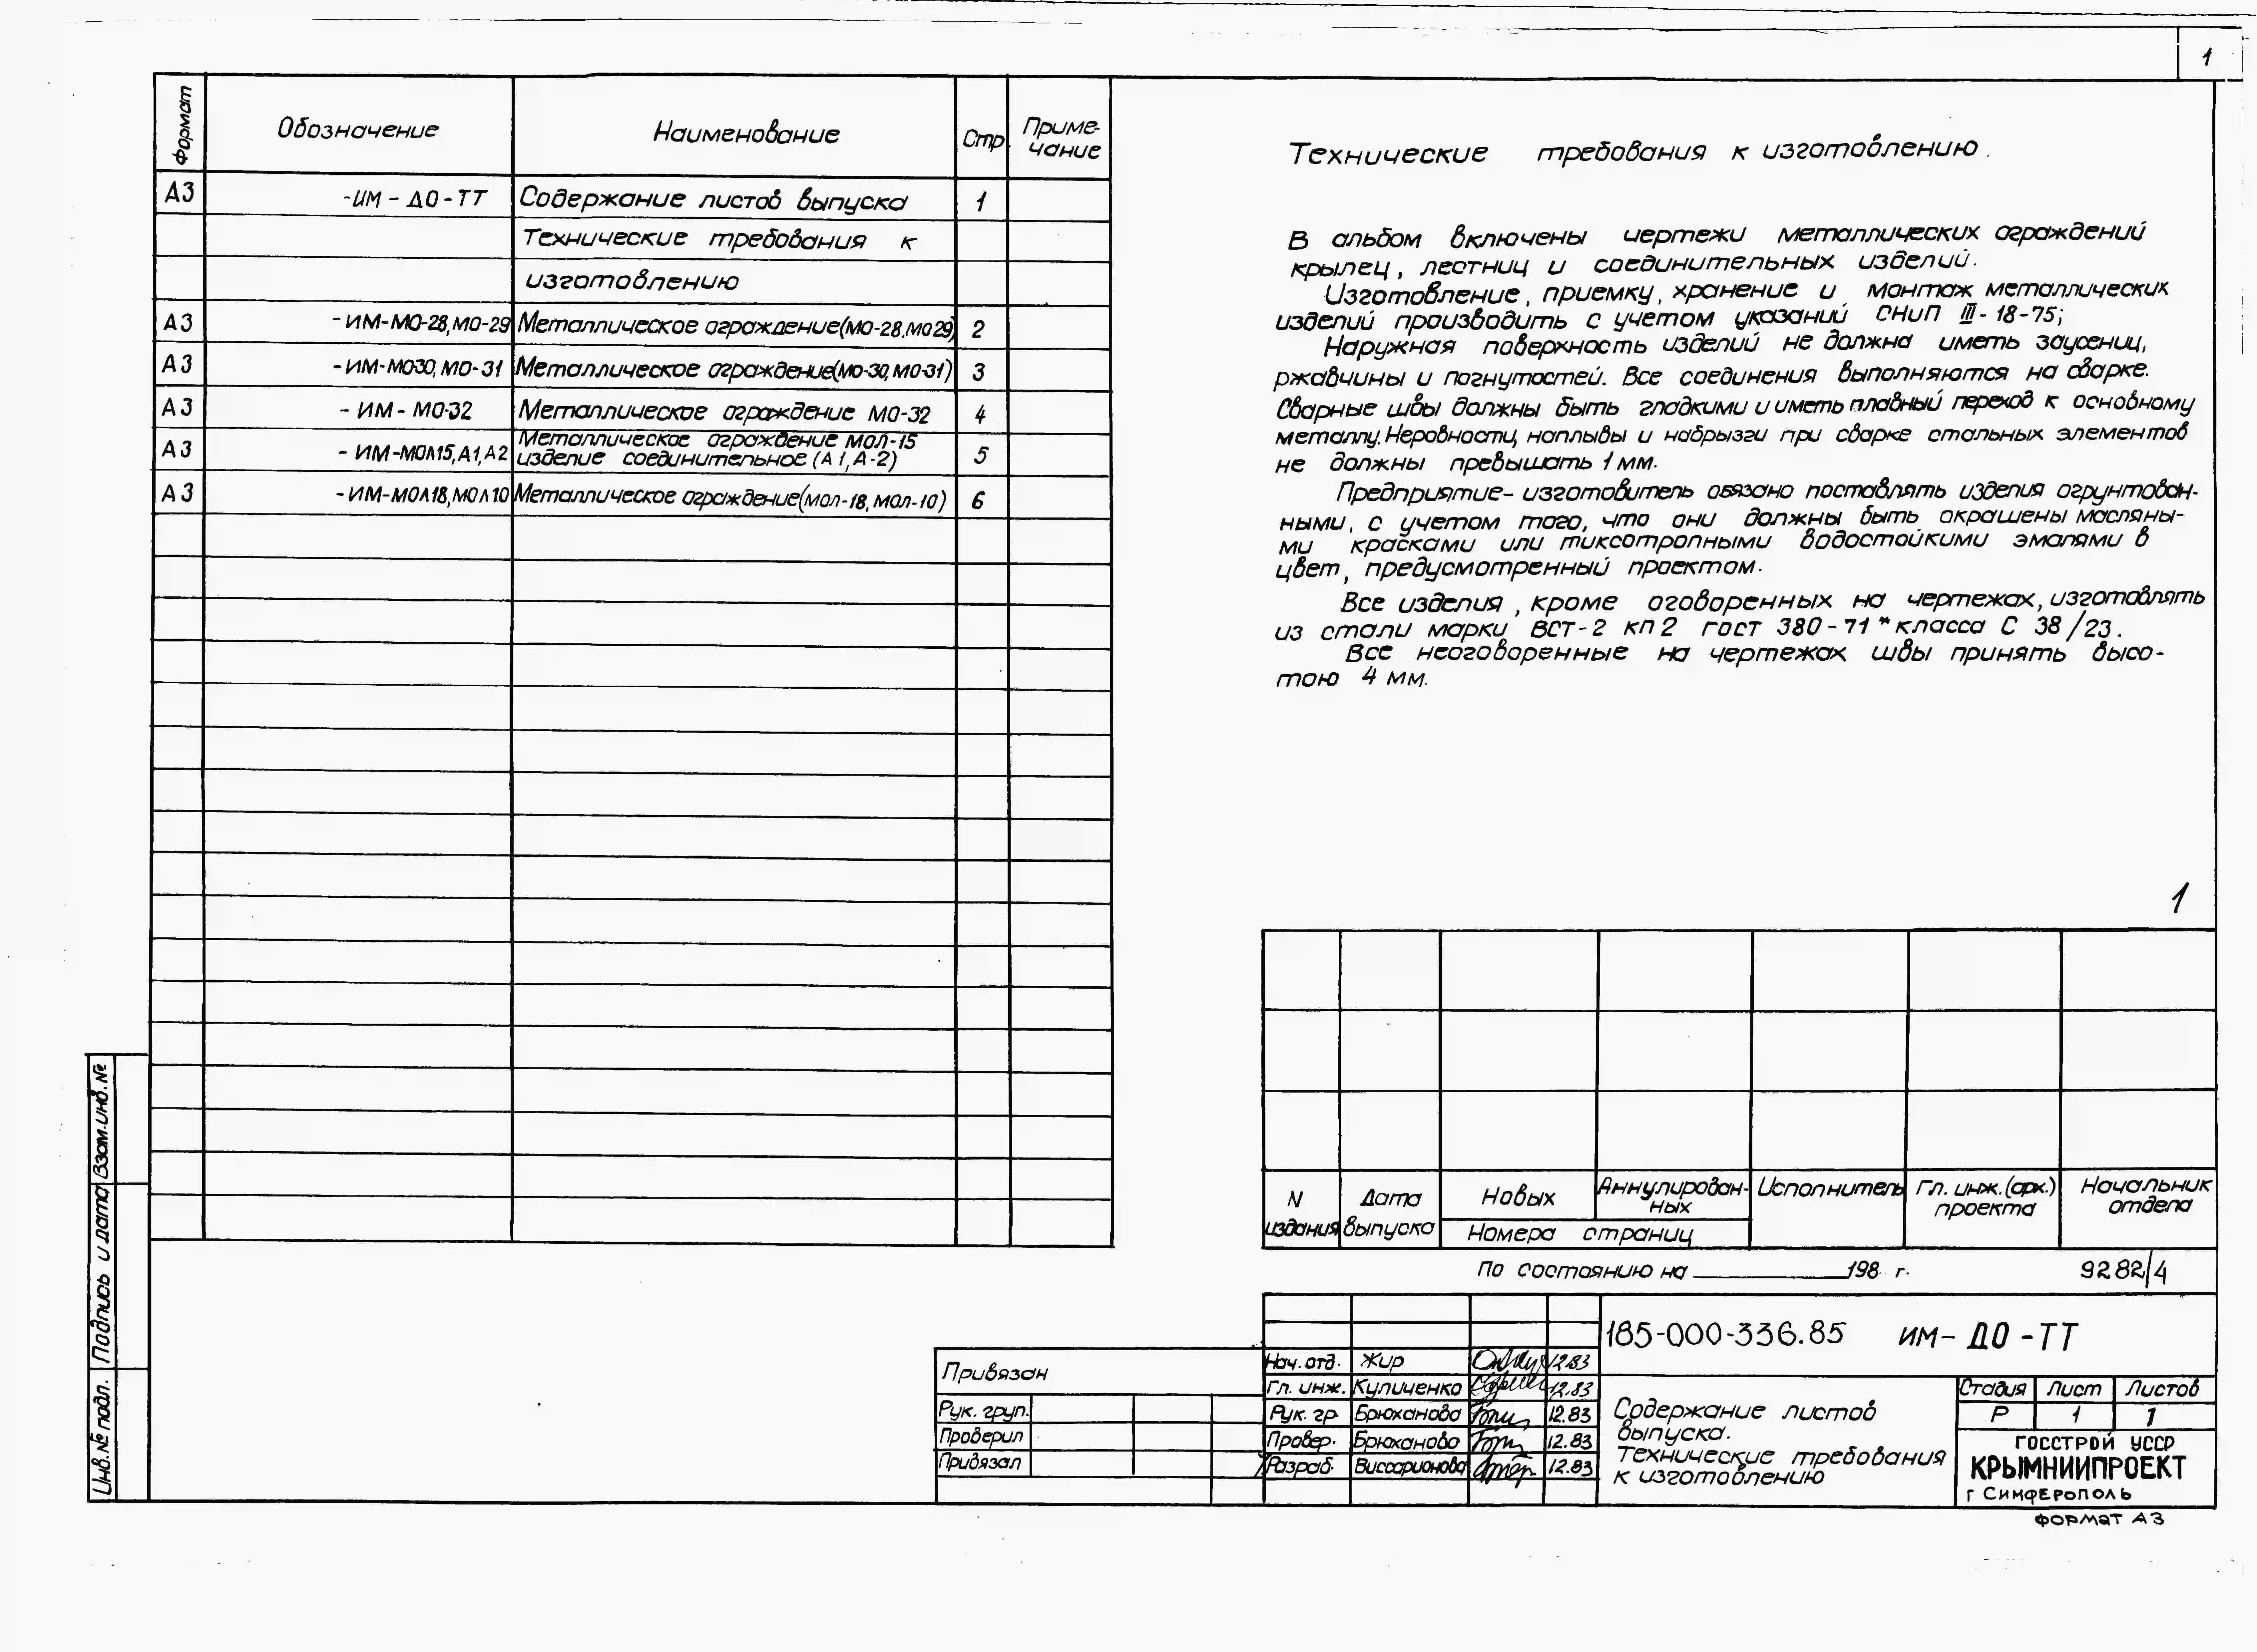 1
Формат
Обозначение
Наименование
Стр.
Приме-
чание
А3 -ИМ-ДО-ТТ Содержание листов выпуска 1
Технические требования к
изготовлению
А3 -ИМ-МО-28,МО-29 Металлическое ограждение(МО-28,МО29) 2
А3 -ИМ-МО30,МО-31 Металлическое ограждение(МО-30,МО-31) 3
А3 -ИМ-МО-32 Металлическое ограждение МО-32 4
А3 -ИМ-МОЛ15,А1,А2 Металлическое ограждение МОЛ-15
изделие соединительное (А1,А-2) 5
А3 -ИМ-МОЛ18,МОЛ10 Металлическое ограждение(МОЛ-18,МОЛ-10) 6
Технические требования к изготовлению.
В альбом включены чертежи металлических ограждений
крылец, лестниц и соединительных изделий.
Изготовление, приемку, хранение и монтаж металлических
изделий производить с учетом указаний СНиП III-18-75;
Наружная поверхность изделий не должна иметь заусениц,
ржавчины и погнутостей. Все соединения выполняются на сварке.
Сварные швы должны быть гладкими и иметь плавный переход к основному
металлу. Неровности, наплывы и набрызги при сварке стальных элементов
не должны превышать 1 мм.
Предприятие-изготовитель обязано поставлять изделия огрунтован-
ными, с учетом того, что они должны быть окрашены масляны-
ми красками или тиксотропными водостойкими эмалями в
цвет, предусмотренный проектом.
Все изделия, кроме оговоренных на чертежах, изготовлять
из стали марки ВСТ-2 кп2 гост 380-71* класса С 38/23.
Все неоговоренные на чертежах швы принять высо-
тою 4 мм.
1
N
издания
Дата
выпуска
Новых
Аннулирован-
ных
Номера страниц
Исполнитель
Гл. инж.(арх.)
проекта
Начальник
отдела
По состоянию на 198 г.
9282/4
185-000-336.85 ИМ-ДО-ТТ
Нач.отд. Жир 12.83
Гл. инж. Куличенко 12.83
Рук. гр. Брюханова 12.83
Провер. Брюханова 12.83
Разраб. Виссарионова 12.83
Содержание листов
выпуска.
Технические требования
к изготовлению
Стадия Лист Листов
Р 1 1
ГОССТРОЙ УССР
КРЫМНИИПРОЕКТ
г Симферополь
Формат А3
Привязан
Рук. груп.
Проверил
Привязал
Взам.инв.№
Подпись и дата
Инв.№ подл.